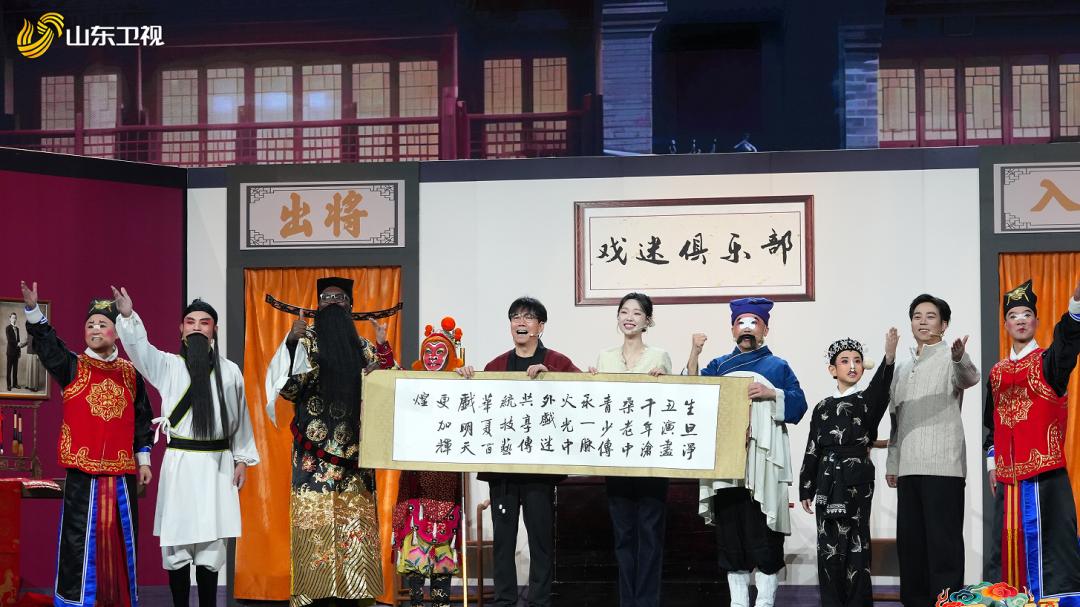 山东卫视
出将
戏迷俱乐部
入
生旦淨
丑演盡
千年滄
桑老中
青少傳
承一脉
火光中
外戲迷
共享傳
統技藝
華夏百
戲明天
更加輝
煌